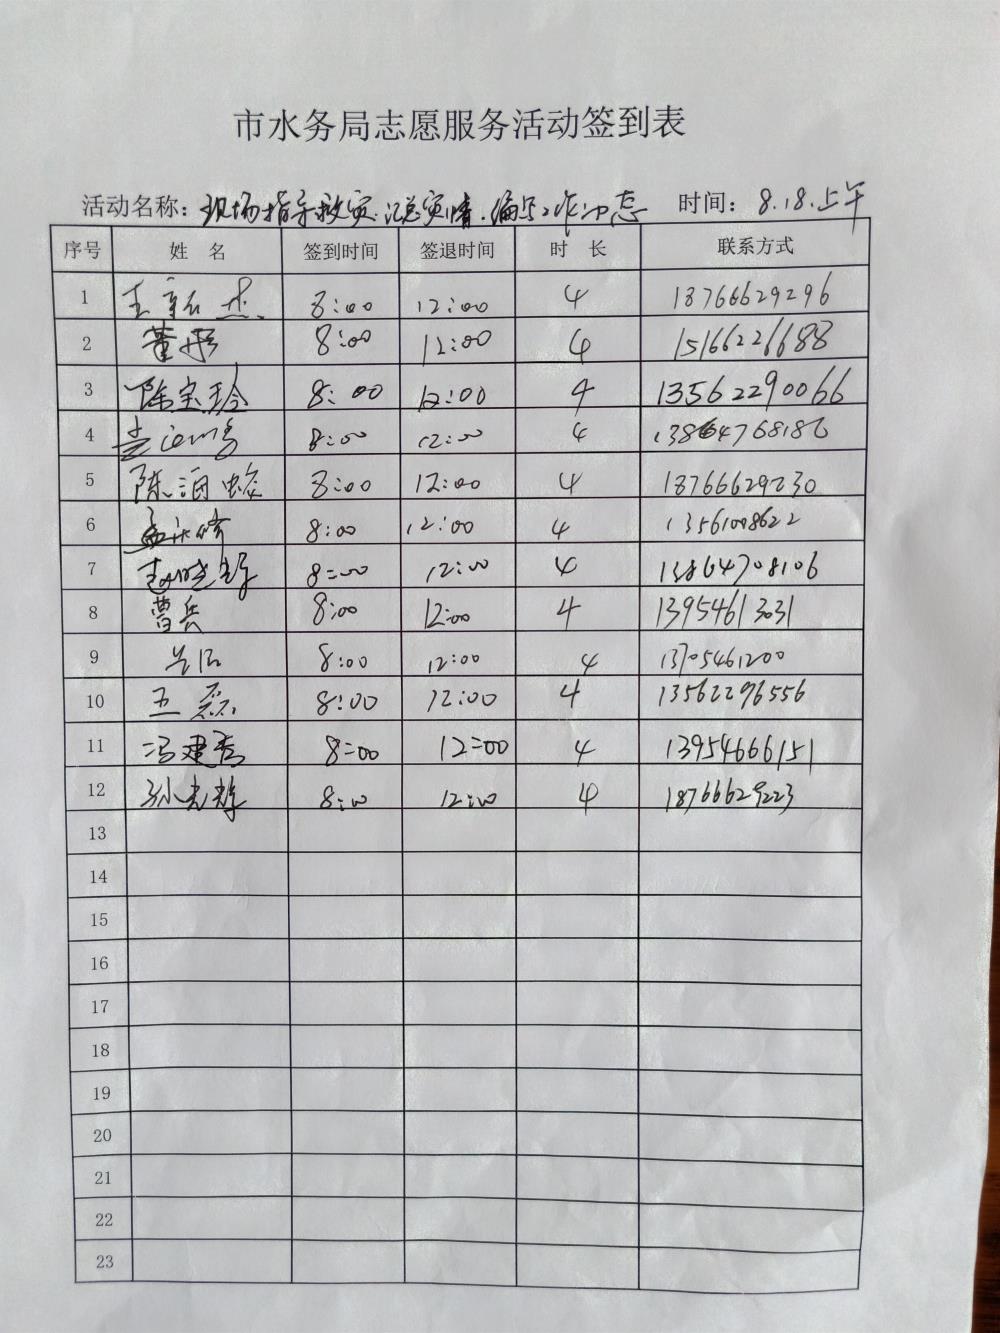 市水务局志愿服务活动签到表
活动名称：现场指导救灾、汇总灾情、编写工作 时间：8.18.上午
序号 姓 名 签到时间 签退时间 时 长 联系方式
1 8:00 12:00 4 18766629296
2 董彤 8:00 12:00 4 15166226688
3 陈宝玲 8:00 12:00 4 13562290066
4 8:00 12:00 4 13864768186
5 陈海蛟 8:00 12:00 4 18766629230
6 8:00 12:00 4 13561008622
7 赵晓辉 8:00 12:00 4 13864708106
8 曹兵 8:00 12:00 4 13954613031
9 8:00 12:00 4 13705461200
10 王磊 8:00 12:00 4 13562296556
11 冯建秀 8:00 12:00 4 13954666151
12 孙光辉 8:00 12:00 4 18766629223
13
14
15
16
17
18
19
20
21
22
23